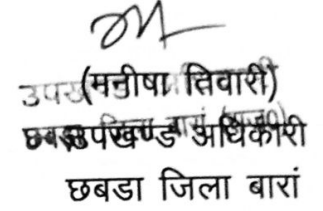 (मनीषा तिवारी)
उपखण्ड अधिकारी
छबडा जिला बारां